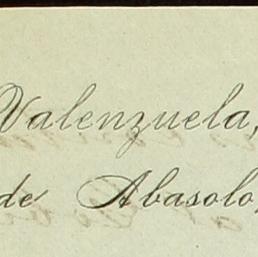 Valenzuela,
de Abasolo,